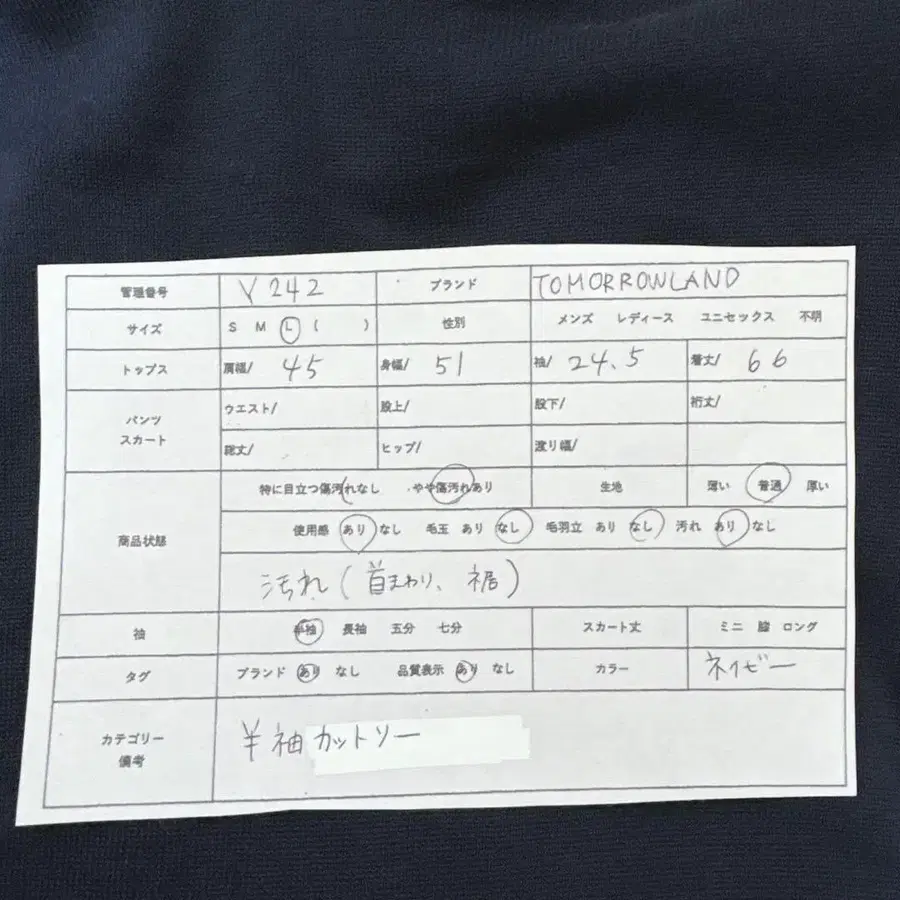 管理番号 V 242 ブランド TOMORROWLAND
サイズ S M L ( ) 性別 メンズ レディース ユニセックス 不明
トップス 肩幅/ 45 身幅/ 51 袖/ 24.5 着丈/ 66
パンツ
スカート
ウエスト/ 股上/ 股下/ 裄丈/
総丈/ ヒップ/ 渡り幅/
商品状態
特に目立つ傷汚れなし やや傷汚れあり 生地 薄い 普通 厚い
使用感 あり なし 毛玉 あり なし 毛羽立 あり なし 汚れ あり なし
汚れ(首まわり、裾)
袖 半袖 長袖 五分 七分 スカート丈 ミニ 膝 ロング
タグ ブランド あり なし 品質表示 あり なし カラー ネイビー
カテゴリー
備考
半袖 カットソー